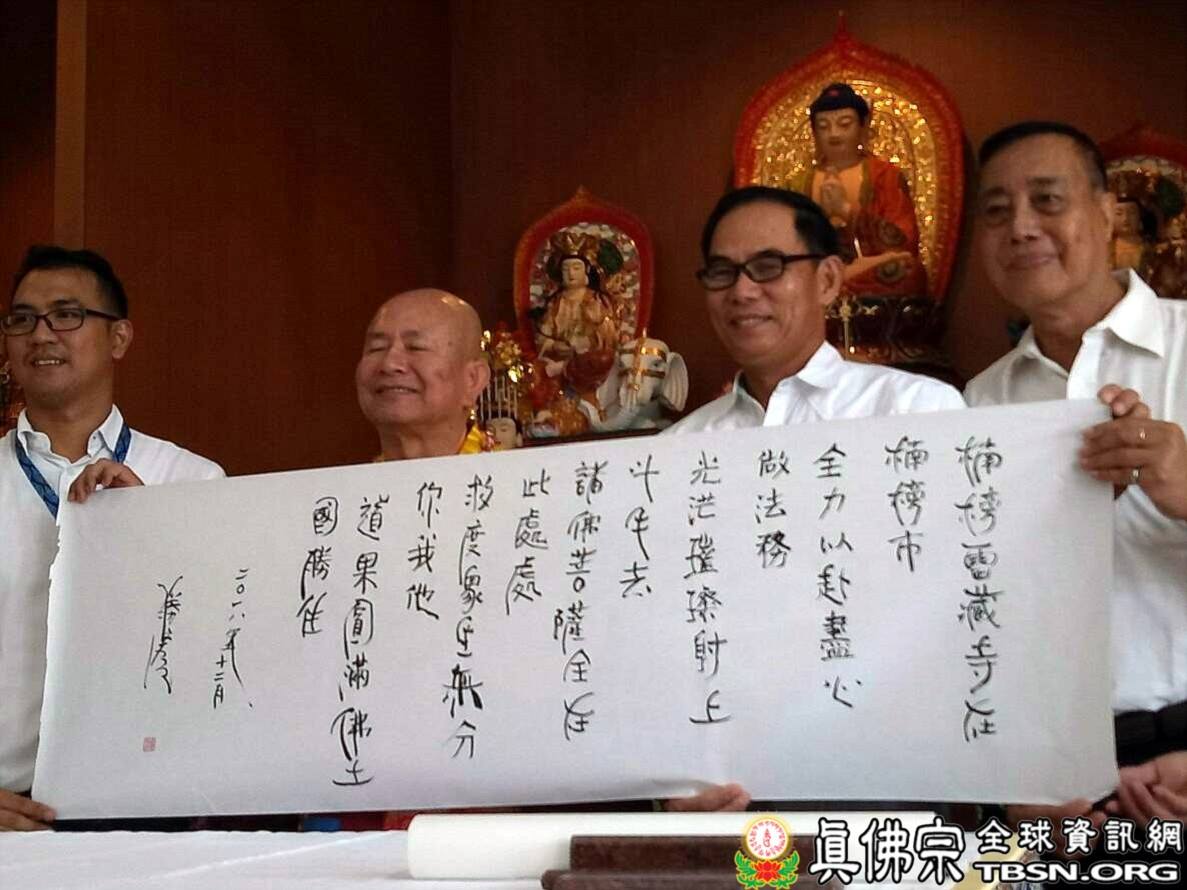 楠榜雷藏寺在
楠榜市
全力以赴盡心
做法務
光芒璀璨射上
斗牛去
諸佛菩薩全在
此處處
救度眾生無分
你我他
道果圓滿佛土
國勝任
二〇一八年十二月
真佛宗全球資訊網
TBSN.ORG